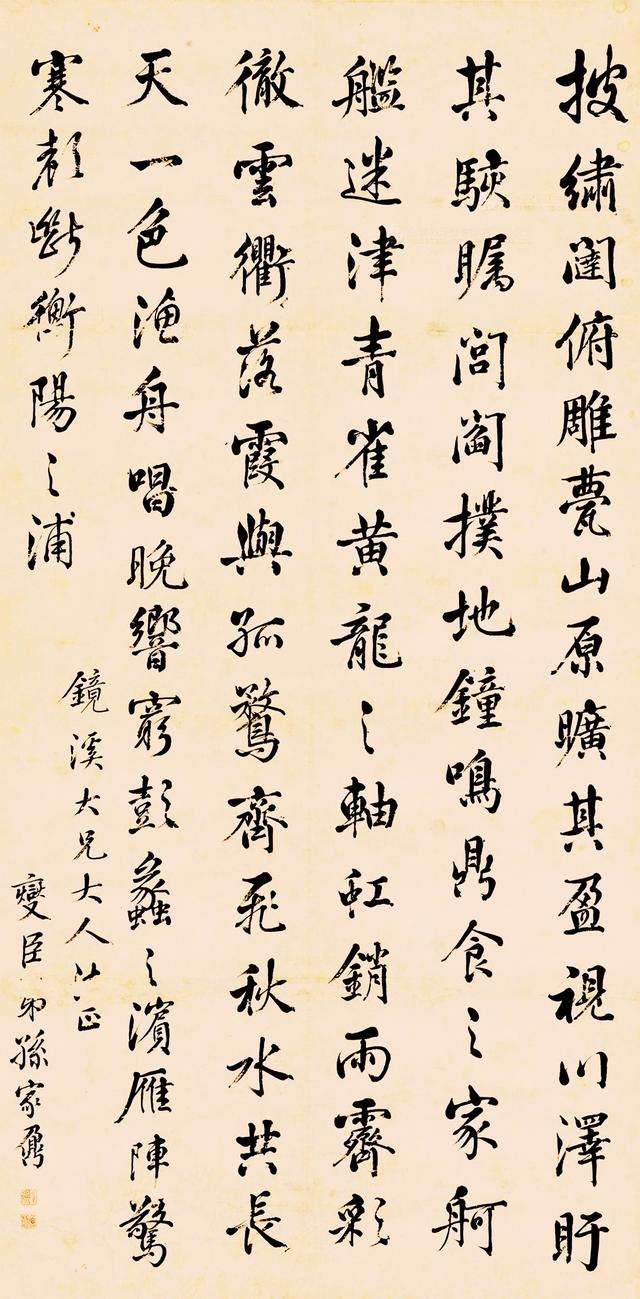 披繡闥俯雕甍山原曠其盈視川澤盱
其駭矚閭閻撲地鐘鳴鼎食之家舸
艦迷津青雀黄龍之軸虹銷雨霽彩
徹雲衢落霞與孤鶩齊飛秋水共長
天一色漁舟唱晚響窮彭蠡之濱雁陣驚
寒聲斷衡陽之浦
鏡溪大兄大人法正
燮臣弟孫家鼐